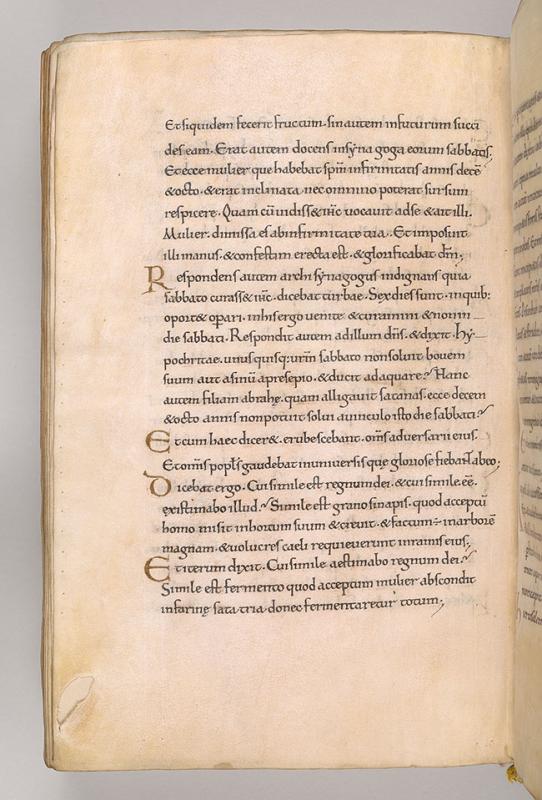 Et siquidem fecerit fructum. sin autem infuturum succi
des eam. Erat autem docens insynagoga eorum sabbatis;
Et ecce mulier que habebat spm infirmitatis annis dece
& octo. & erat inclinata. nec omnino poterat sursum
respicere. Quam cu uidiss& ihc uocauit ad se & ait illi.
Mulier. dimissa es abinfirmitate tua. Et imposuit
illi manus. & confestim erecta est. & glorificabat dm;
Respondens autem archisynagogus indignans quia
sabbato curass& ihc. dicebat turbae. Sex dies sunt. inquib:
oport& operari. inhis ergo uenite & curamini & non in
die sabbati. Respondit autem ad illum dns. & dixit. Hy
pochritae. unusquisq: urm sabbato non soluit bouem
suum aut asinu a presepio. & ducit adaquare? Hanc
autem filiam abrahę. quam alligauit satanas. ecce decem
& octo annis non potuit solui auinculo isto die sabbati?
Et cum haec dicer&. erubescebant. oms aduersarii eius.
Et omis popls gaudebat inuniuersis que gloriose fiebant abeo;
Dicebat ergo. Cui simile est regnum dei. & cui simile ee.
existimabo illud? Simile est grano sinapis. quod acceptu
homo misit inhortum suum & creuit. & factum ÷ inarbore
magnam. & uolucres caeli requieuerunt inramis eius;
Et iterum dixit. Cui simile aestimabo regnum dei?
Simile est fermento quod acceptum mulier abscondit
infarinę sata tria. donec fermentaretur totum;